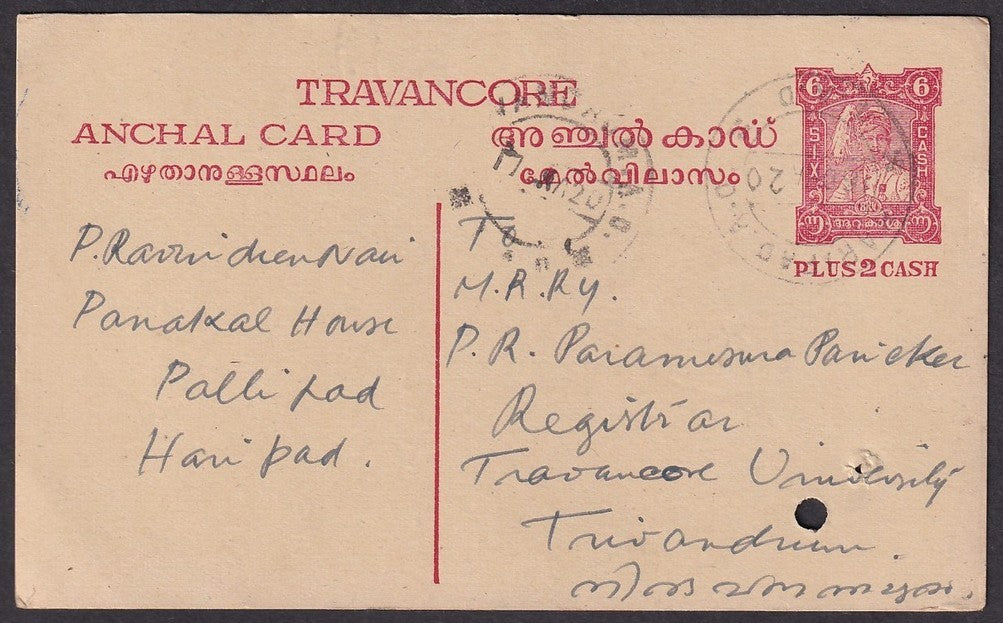 TRAVANCORE
ANCHAL CARD
എഴുതാനുള്ളസ്ഥലം
അഞ്ചൽ കാഡ്
മേൽവിലാസം
6 6
SIX CASH
PLUS 2 CASH
P. Ravindren Nair
Panakal House
Pallipad
Haripad.
To
M.R.Ry.
P. R. Parameswra Panicker
Registrar
Travancore University
Trivandrum.